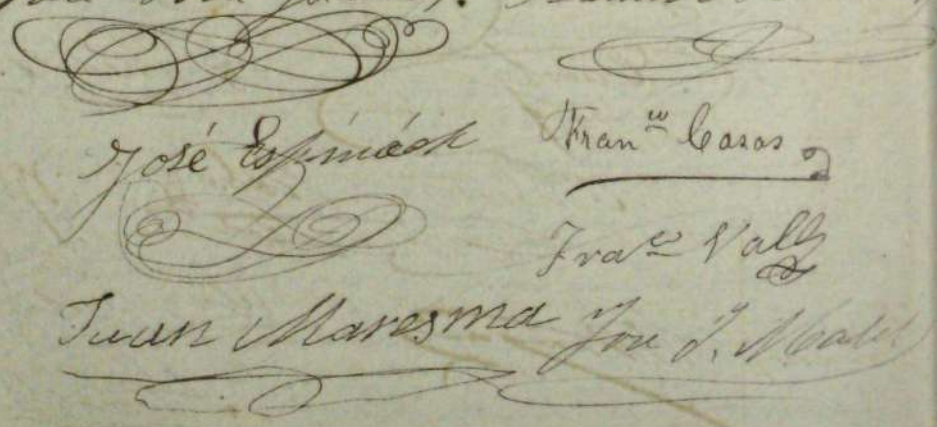 José Espinách Fran.co Casas
Fra.co Valls
Juan Maresma José J.